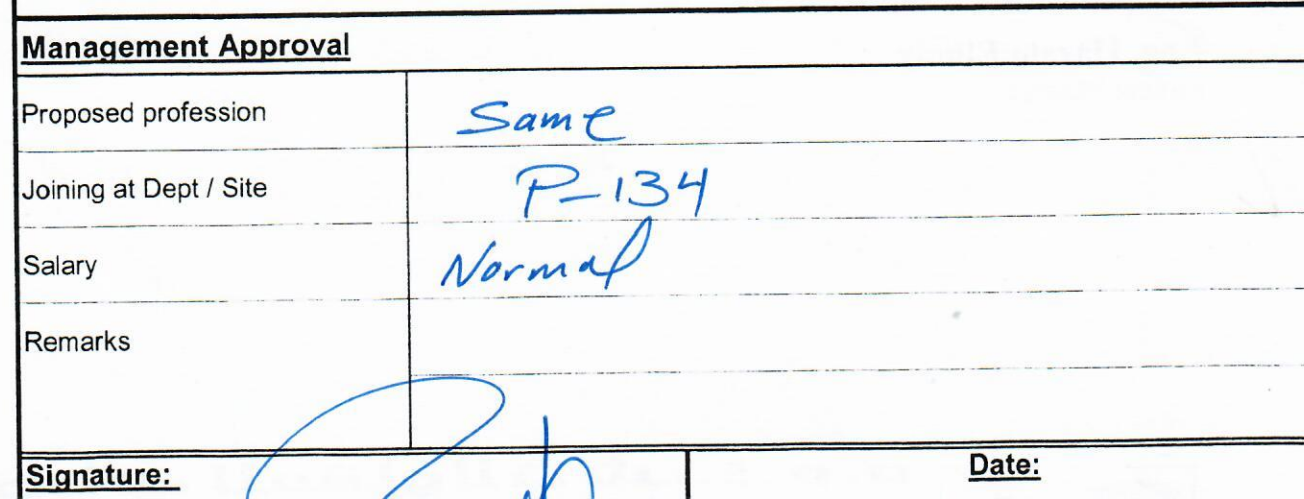 Management Approval
Proposed profession Same
Joining at Dept / Site P-134
Salary Normal
Remarks
Signature: Date: